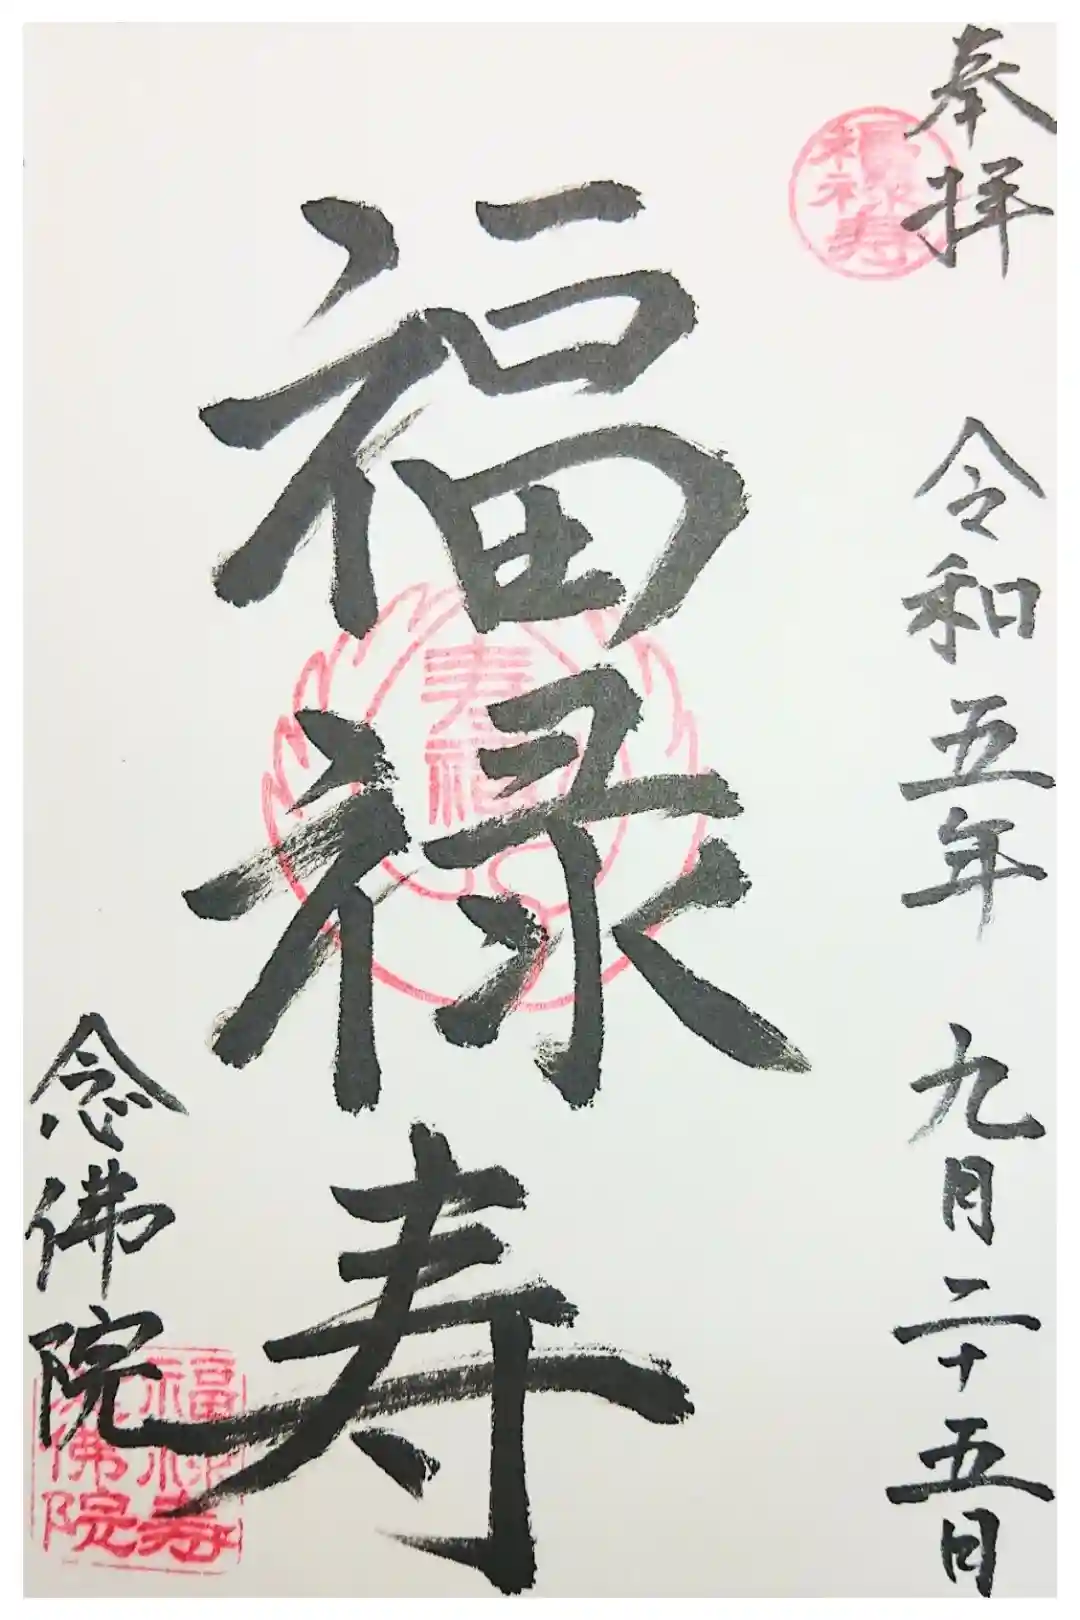 奉拝
令和五年
九月二十五日
福禄寿
念佛院
福禄寿
寿福
福禄寿
念佛院